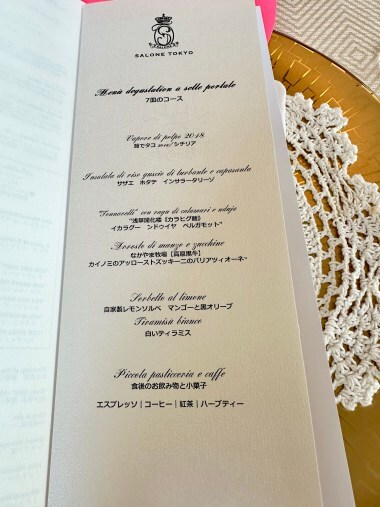 SALONE TOKYO
Menù degustation a sette portate
7皿のコース
Vapore di polpo 2048
茹でタコ over シチリア
Insalata di riso guscio di turbante e capasanta
サザエ ホタテ インサラータリーゾ
"Tonnarelli" con ragu di calamari e nduja
"浅草開化楼【カラヒグ麺】
イカラグー ンドゥイヤ ベルガモット"
Arrosto di manzo e zucchine
なかやま牧場【高原黒牛】
カイノミのアッローストズッキーニのバリアツィオーネ"
Sorbetto al limone
自家製レモンソルベ マンゴーと黒オリーブ
Tiramisù bianco
白いティラミス
Piccola pasticceria e caffe
食後のお飲み物と小菓子
エスプレッソ|コーヒー|紅茶|ハーブティー